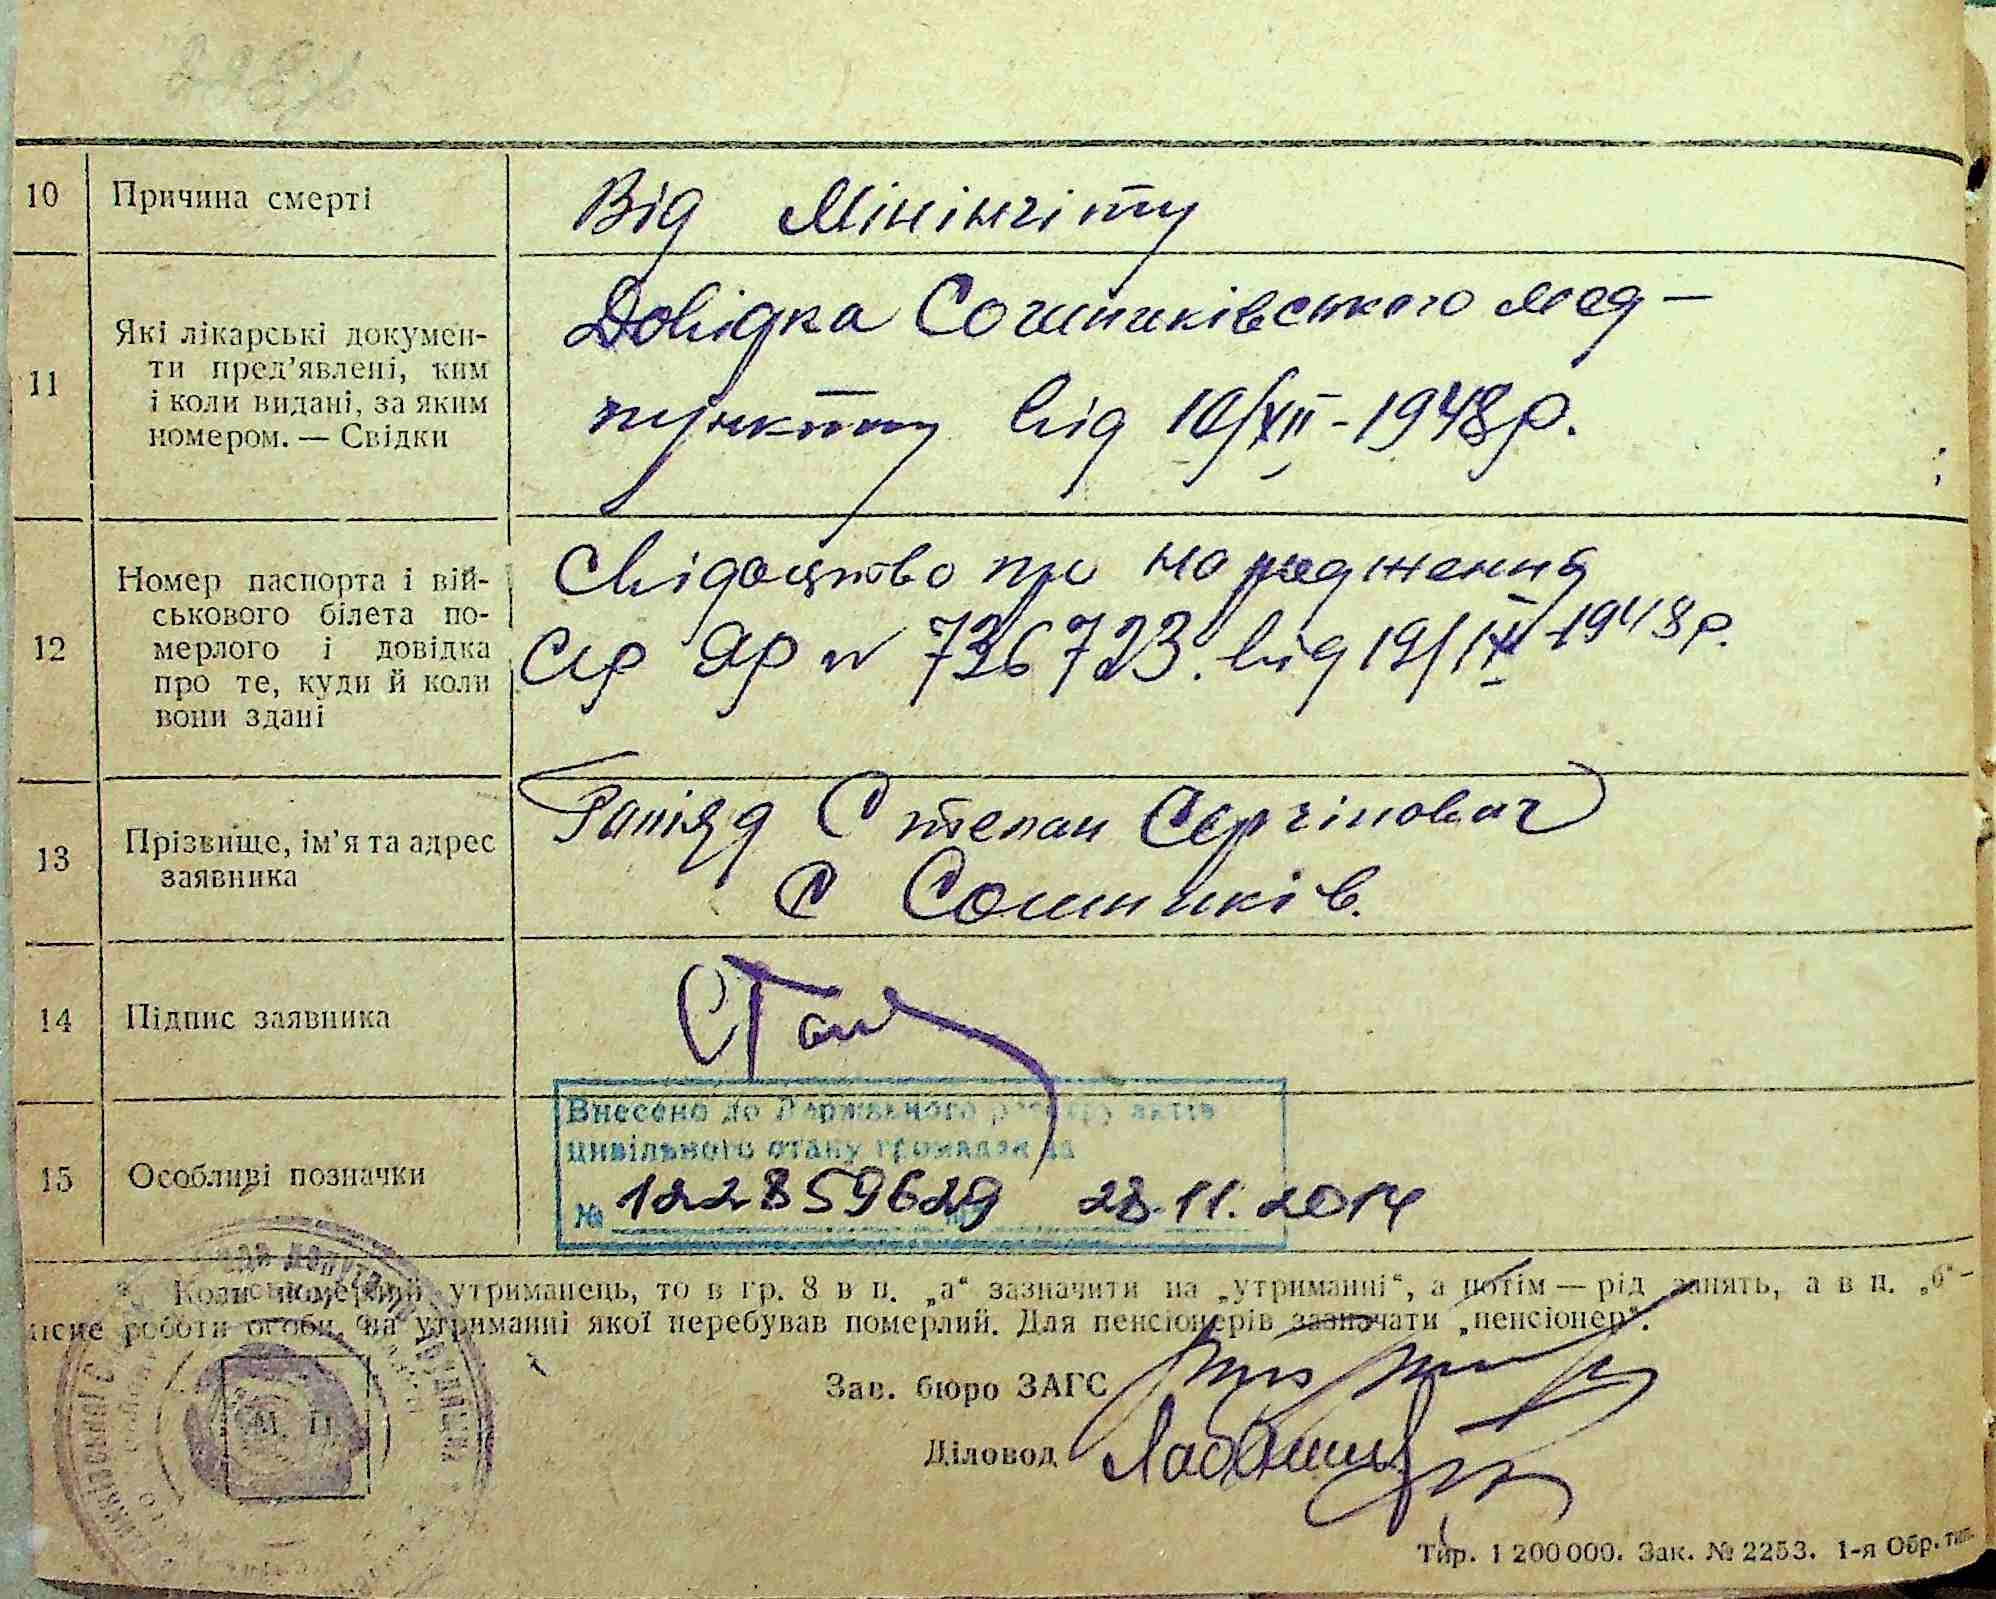 10 Причина смерті
Від Мінінгіту
11 Які лікарські докумен-
ти пред'явлені, ким
і коли видані, за яким
номером. — Свідки
Довідка Сошниківського мед-
пункту від 10/XII-1948р.
12 Номер паспорта і вій-
ськового білета по-
мерлого і довідка
про те, куди й коли
вони здані
Свідоцтво про народження
Сер ЯР № 736723. від 19/IX-1948р.
13 Прізвище, ім'я та адрес
заявника
Степан Сергійович
С Сошників.
14 Підпис заявника
15 Особливі позначки
Внесено до Державного реєстру актів
цивільного стану громадян за
№ 122859629 28.11.2014
Коли померлий утриманець, то в гр. 8 в п. „а“ зазначити на „утриманні“, а потім — рід занять, а в п. „б“-
місце роботи особи, на утриманні якої перебував померлий. Для пенсіонерів зазначати „пенсіонер“.
Зав. бюро ЗАГС
Діловод
М. П.
Тир. 1 200 000. Зак. № 2253. 1-я Обр. тип.